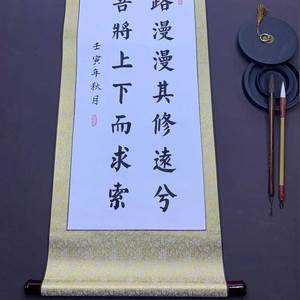 路漫漫其修遠兮
吾將上下而求索
壬寅年秋月